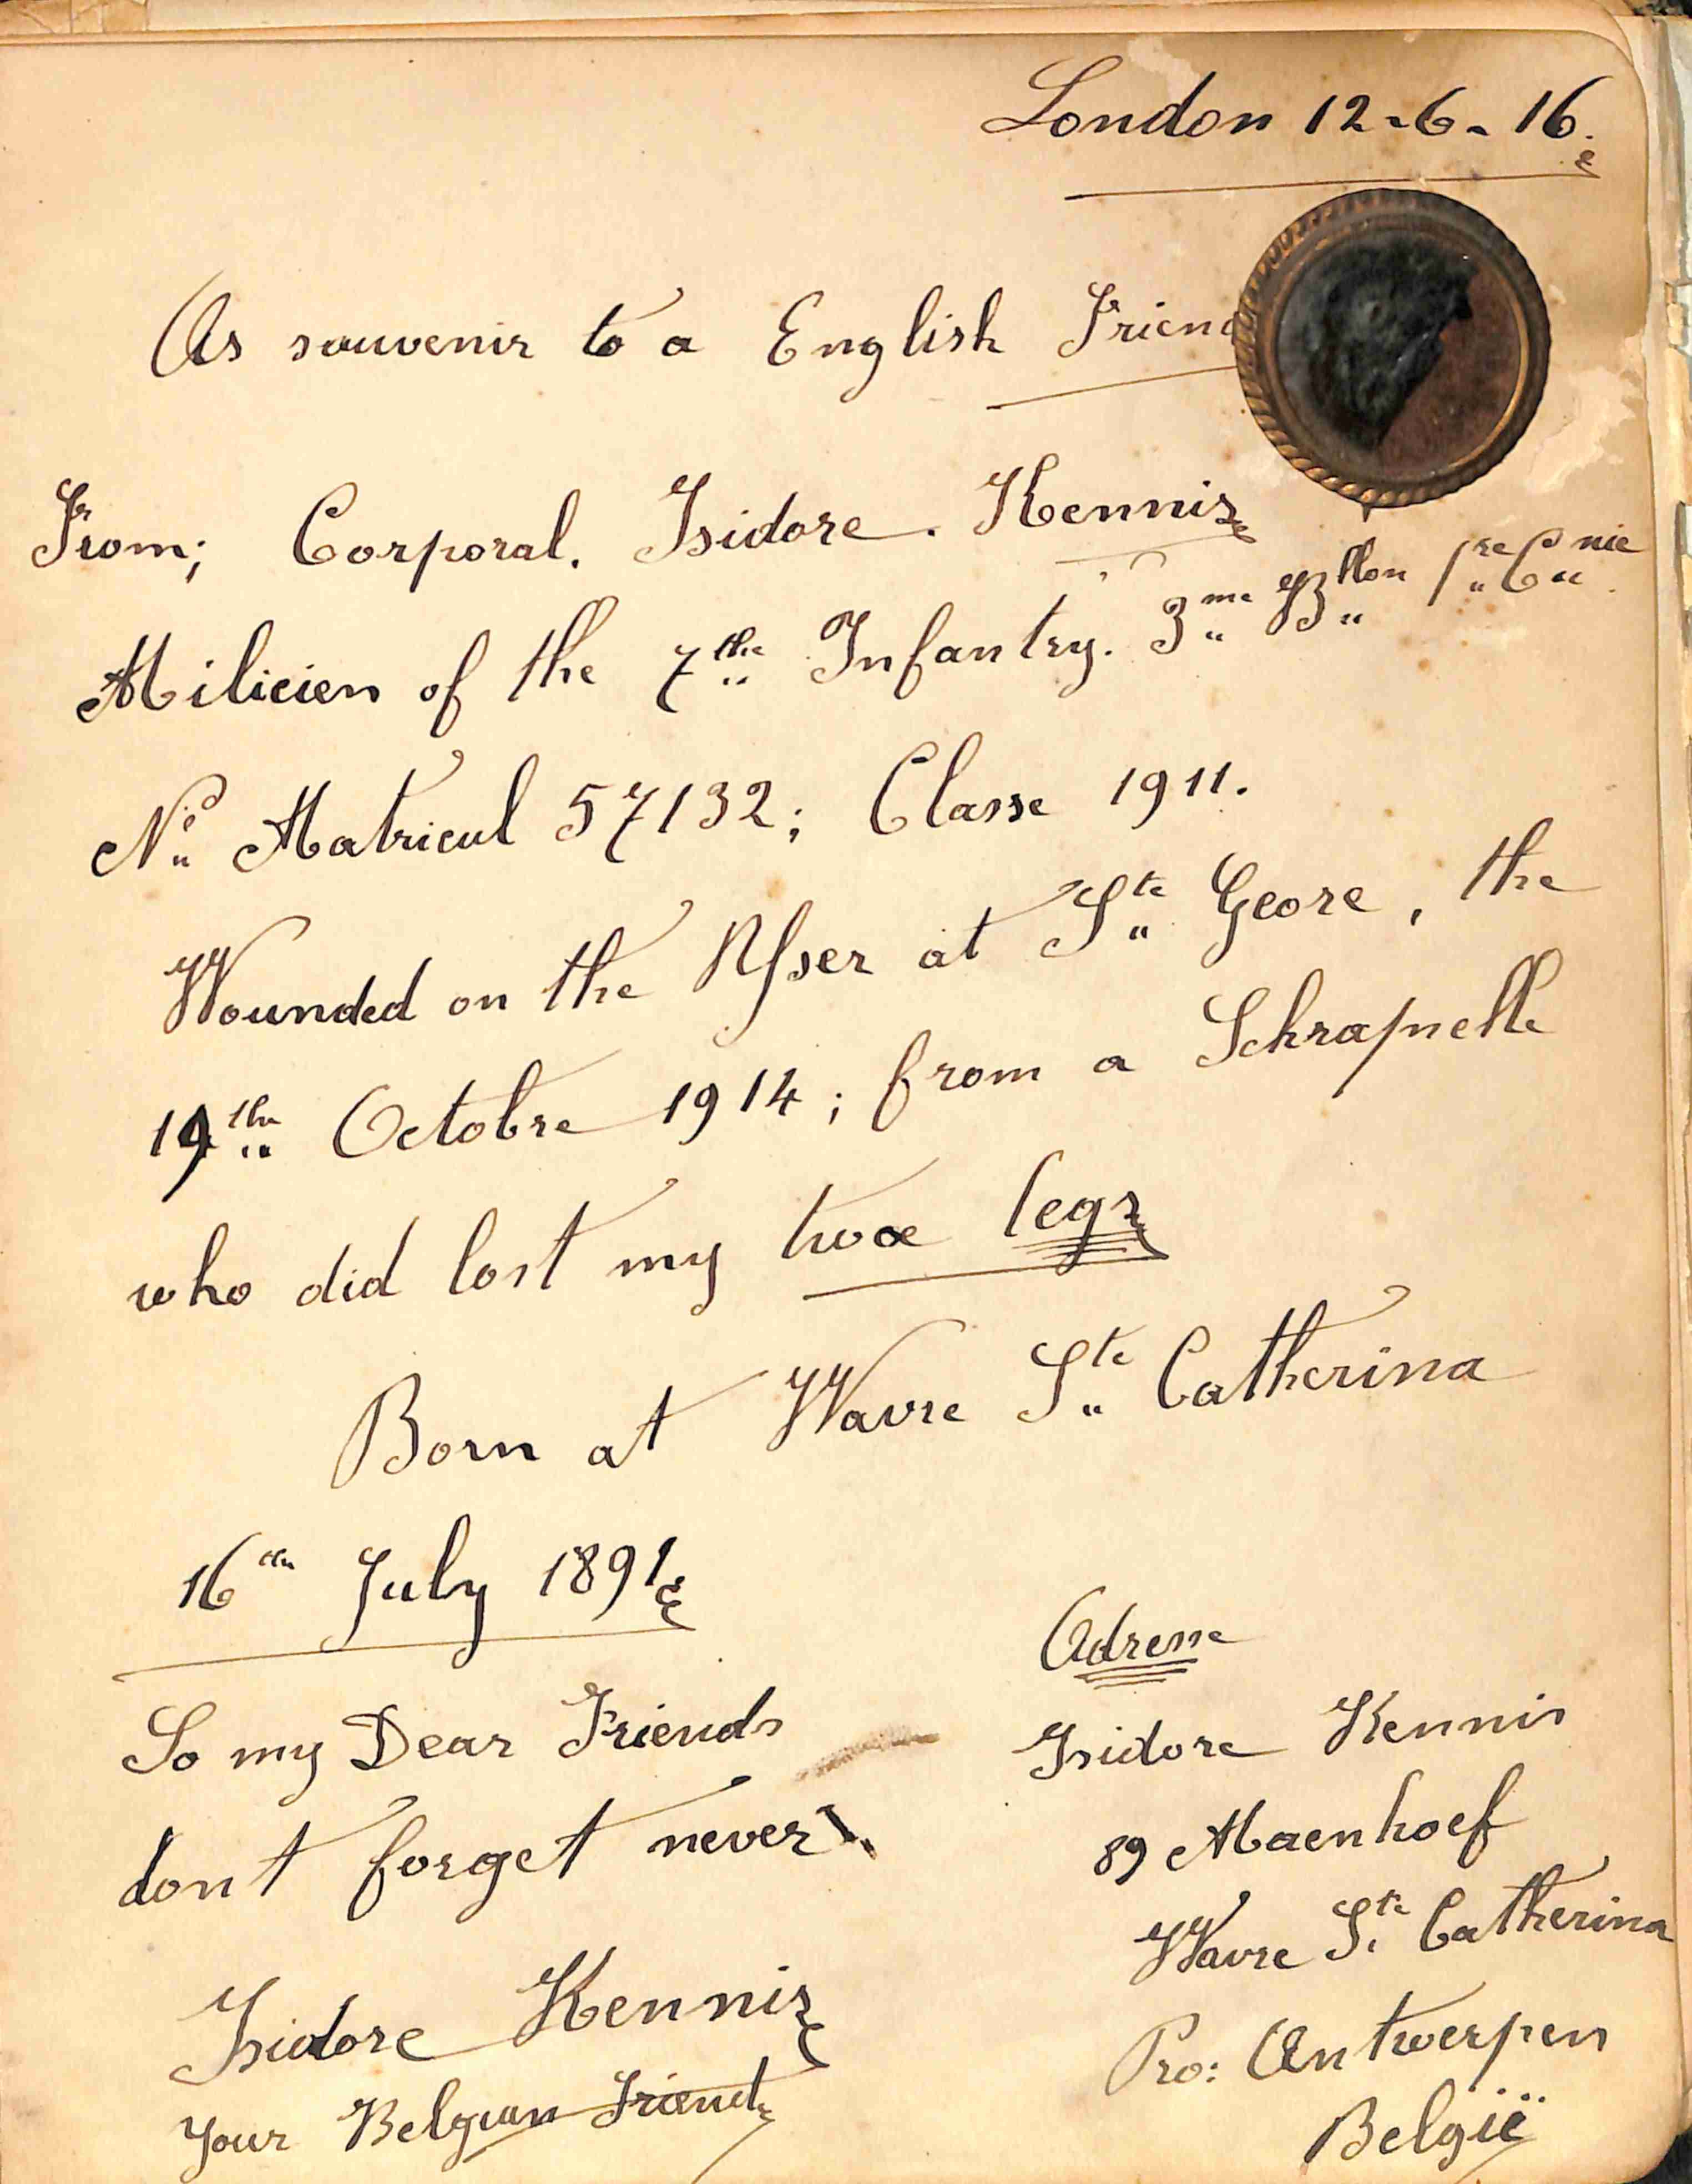 London 12-6-16.
As souvenir to a English Friend
From; Corporal. Isidore. Kennis
Milicien of the 7the Infantry. 3me Bllon 1re Cnie
No Matricul 57132; Classe 1911.
Wounded on the Yser at Ste Geore, the
19the Octobre 1914; from a Schrapnelle
who did lost my twoe legs
Born at Wavre Ste Catherina
16th July 1891
So my Dear Friends
dont forget never
Isidore Kennis
Your Belgian Friend
Adresse
Isidore Kennis
89 Maenhoef
Wavre Ste Catherina
Pro: Antwerpen
België